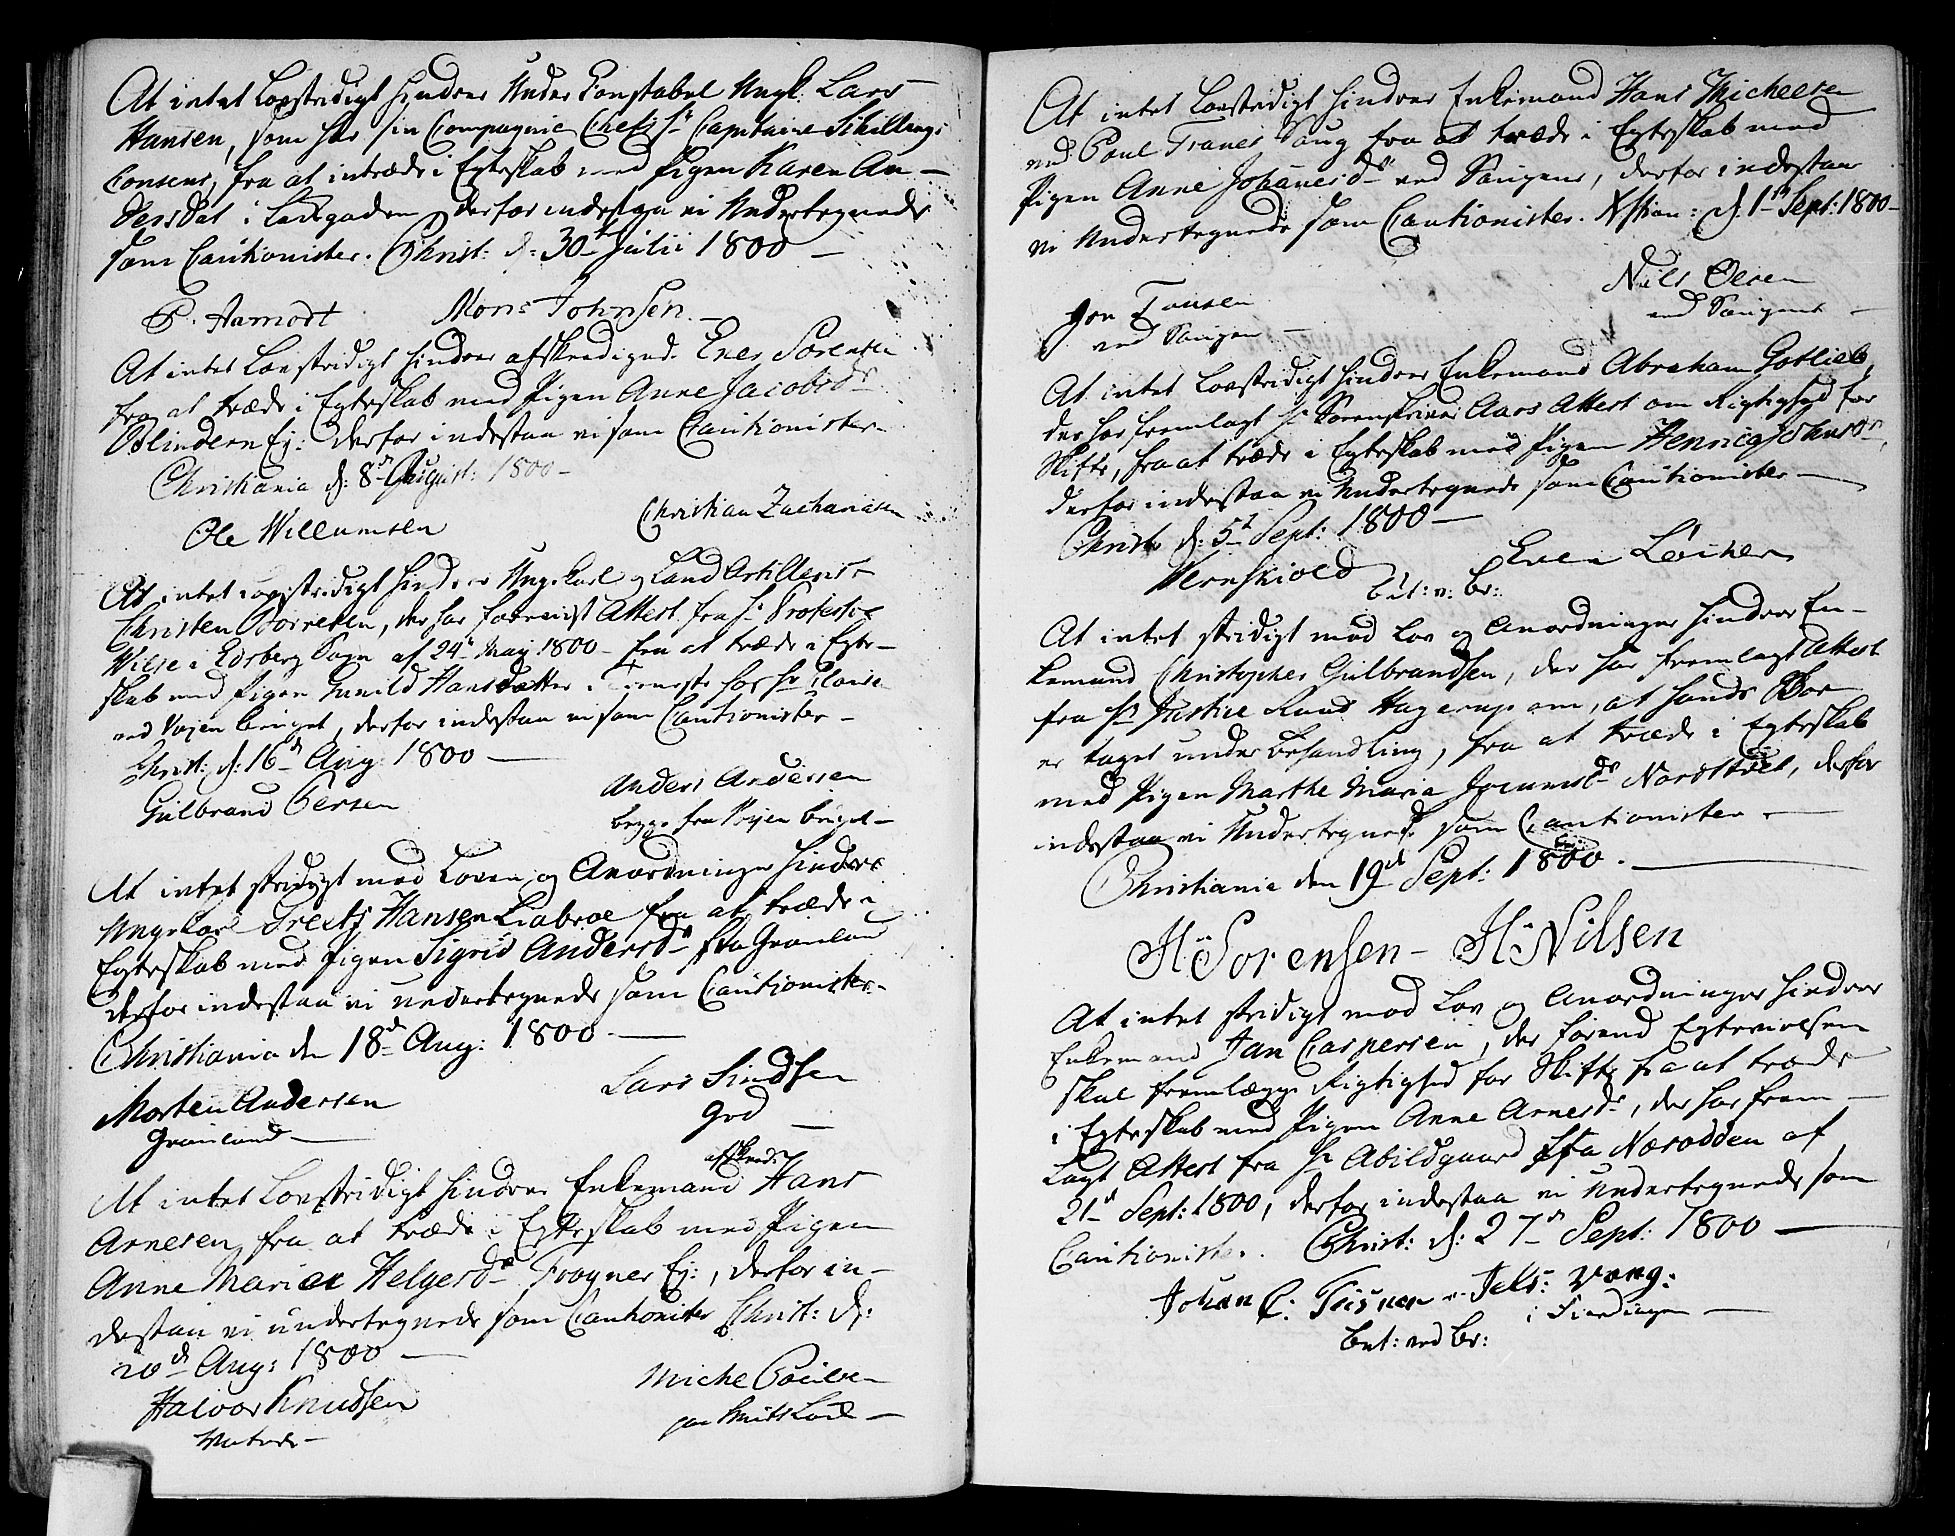 At intet Lovstridigt hindrer Under Constabel Ungk: Lars
Hansen, som har sin Compagnie Chefs Hr Capitaine Schillings
Consens, fra at intræde i Egteskab med Pigen Karen An-
dersdat i Ladegaden derfor indestaa vi Undertegnede
som Cautionister. Christ: d: 30 Julii 1800 -
P. Aamodt Mons Johnsen
At intet Lovstridigt hindrer afskeediged Even Sørensen
fra at træde i Egteskab med Pigen Anne Jacobsdr
Blindern Ej: derfor indestaa vi som Cautionister
Christiania d: 8de August: 1800 -
Ole Willumsen Christian Zachariasen
At intet Lovstridigt hindrer Ungekarl og Land Artillerist
Christen Borresen, der har foreviist Attest fra Hr Professor
Wilse i Edsberg Sogn af 24de May 1800 - fra at træde i Egte-
skab med Pigen Gunild Hansdatter i Tieneste hos Hr
ved Vøjen bruget, derfor indestaa vi som Cautionister -
Christ: d: 16de Aug: 1800 -
Gulbrand Persen Anders Andersen
begge fra Vøjen bruget -
At intet stridigt med Loven og Anordninger hindrer
Ungekarl Hansen Liabroe fra at træde i
Egteskab med Pigen Sigrid Andersdr fra Grønland
derfor indestaa vi undertegnede som Cautionister -
Christiania den 18de Aug: 1800 -
Morten Andersen Lars
Grønland -
afskeed:
At intet Lovstridigt hindrer Enkemand Hans
Arnesen, fra at træde i Egteskab med Pigen
Anne Maria Helgesdr Frogner Ej:, derfor in-
destaa vi undertegnede som Cautionister Christ: d:
20de Aug: 1800 -
Halvor Knudsen
At intet Lovstridigt hindrer Enkemand Hans Michelsen
ved Poul Tranes Saug fra at træde i Egteskab med
Pigen Anne Johanesdr ved Saugene, derfor indestaar
vi Undertegnede som Cautionister. Xstian: d: 1ste Sept: 1800 -
Niels Olsen
ved Saugene -
ved Saugen -
At intet Lovstridigt hindrer Enkemand Abraham Gotlieb,
der har fremlagt Hr Sorenskriver Aars Attest om Rigtighed for
Skifte, fra at træde i Egteskab med Pigen
derfor indestaa vi Undertegnede som Cautionister -
Christ: d: 5te Sept: 1800 -
Wernskiold Even
bet: v: br:
At intet stridigt med Lov og Anordninger hindrer En-
kemand Christopher Gulbrandsen, der har fremlagt Attest
fra Hr Justice Raad Hagerup om, at hands Boe
er taget under behandling, fra at træde i Egteskab
med Pigen Marthe Maria Nordstrøl, derfor
indestaa vi Undertegnede som Cautionister -
Christiania den 19de Sept: 1800. -
H: Sørensen - H: Nilsen
At intet stridigt med Lov og Anordninger hindrer
Enkemand Jan Caspersen, der førend Egtevielsen
skal fremlægge Rigtighed for Skifte fra at træde
i Egteskab med Pigen Anne Arnesdr, der har frem-
lagt Attest fra Hr Abildgaard fra Næsodden af
21de Sept: 1800, derfor indestaa vi Undertegnede som
Cautionister. Christ: d: 27de Sept: 1800 -
Johan C:
i Fierdingen -
bet: ved br: